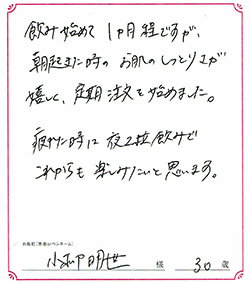 飲み始めて1ヵ月程ですが、
朝起きた時のお肌のしっとりさが
嬉しく、定期注文を始めました。
疲れた時は夜2粒飲みで
これからも楽しみたいと思います。
お名前(芸名orペンネーム)
明世 様 30歳